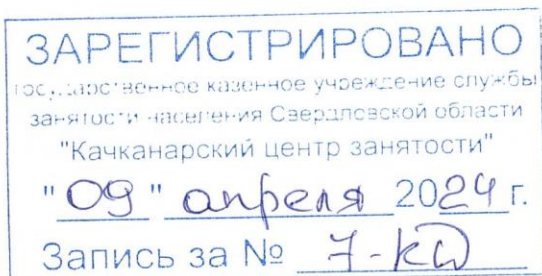 ЗАРЕГИСТРИРОВАНО
государственное казенное учреждение службы
занятости населения Свердловской области
"Качканарский центр занятости"
"09" апреля 2024 г.
Запись за № 7-кд